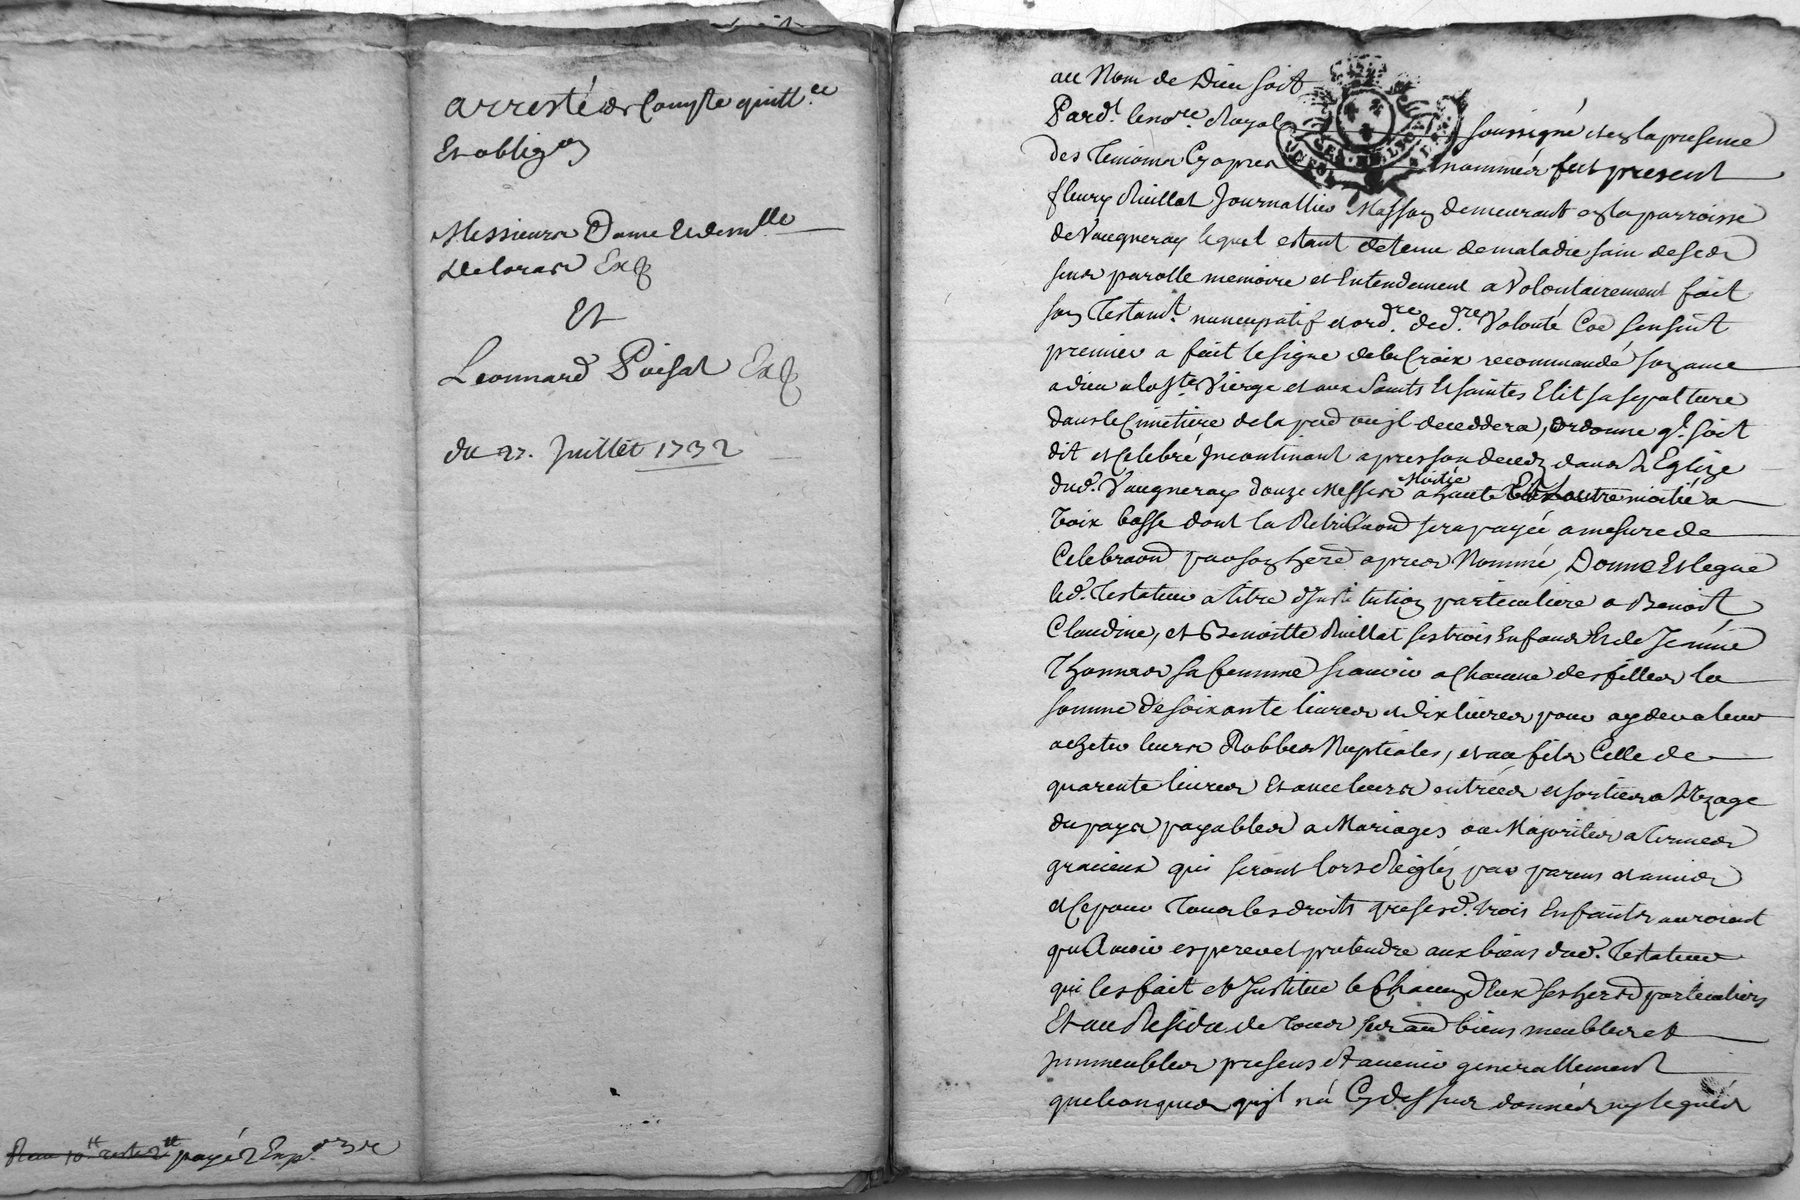 arresté de Compte quitt.ce
Et oblig.on
Messieurs Dame et dem.lle
Delorase Exp
Et
Leonnard Poisat Exp
du 27. Juillet 1732
payé 2 Exp.
au Nom de Dieu soit
Pard.t le no.re Royal soussigné et en la presence
des Temoins Cy apres nommés fut present
fleury Ruillat Journallier Masson demeurant en la parroisse
de Vaugneray lequel estant detenu de maladie sain de ses
sens parolle memoire et Entendement a Volontairement fait
son Testam.t nuncupatif et ord.re de d.re Volonté Coe sensuit
premier a fait le signe de la Croix recommandé son ame
a dieu a la S.te Vierge et aux Saints Et saintes Elit sa sepulture
dans le Cimetiere de la par.d ou jl deceddera, ordonne q.l soit
dit et Celebré Jncontinant apres son deceds dans L'Eglize
dud. Vaugneray douze Messes Moitié a haute Et L'autre moitié a
Voix basse dont la Retribuond sera payée a mesure de
Celebraond par son herd apres Nommé, Donne Et legue
led. Testateur a titre d'Institution particuliere a Benoist
Claudine, et Benoitte Ruillat ses trois Enfans Et de
Thomas sa femme scavoir a Chacune des filles la
somme de soixante livres et dix livres pour ayder a leur
acheter leurs Robbes Nuptiales, et au fils Celle de
quarente livres Et avec leurs entrées et sorties a L'Vzage
du pays payables a Mariages ou Majorités a termes
gracieux qui seront lors Reiglés par parens et amies
et Ce pour Tous les droits que sesd. trois Enfants auroient
pu Avoir esperer et pretendre aux biens dud. Testateur
qui les fait et Institue le Chacun d'Eux ses herd particuliers
Et au Residu de tous ses aud biens meubles et
jmmeubles presens et avenir generallement
quelconques qu'jl n'a Cy dessus donnés ny legués